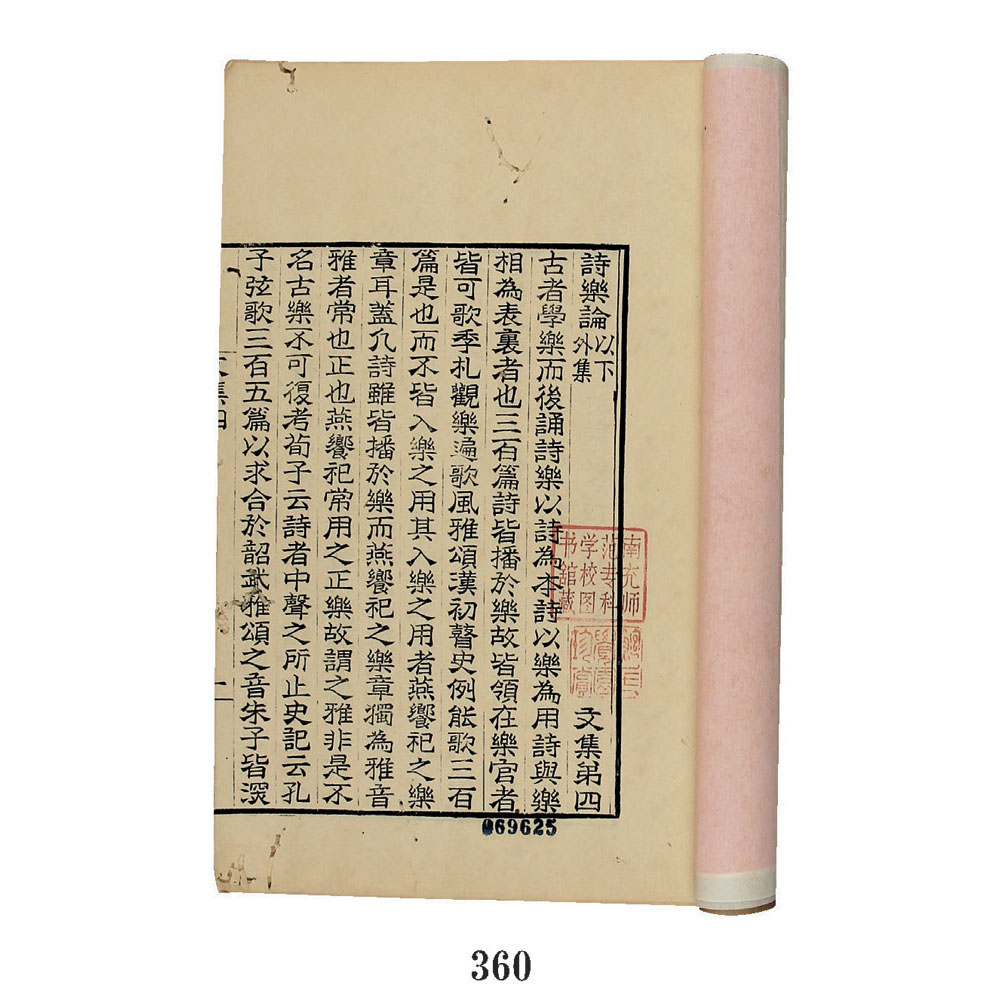 詩樂論以下外集 文集第四
古者學樂而後誦詩樂以詩為本詩以樂為用詩與樂
相為表裏者也三百篇詩皆播於樂故皆領在樂官者
皆可歌季札觀樂遍歌風雅頌漢初瞽史例能歌三百
篇是也而不皆入樂之用其入樂之用者燕饗祀之樂
章耳蓋凡詩雖皆播於樂而燕饗祀之樂章獨為雅音
雅者常也正也燕饗祀常用之正樂故謂之雅非是不
名古樂不可復考荀子云詩者中聲之所止史記云孔
子弦歌三百五篇以求合於韶武雅頌之音朱子皆深
文集四
一
南充师
范专科
学校图
书舘藏
069625
360